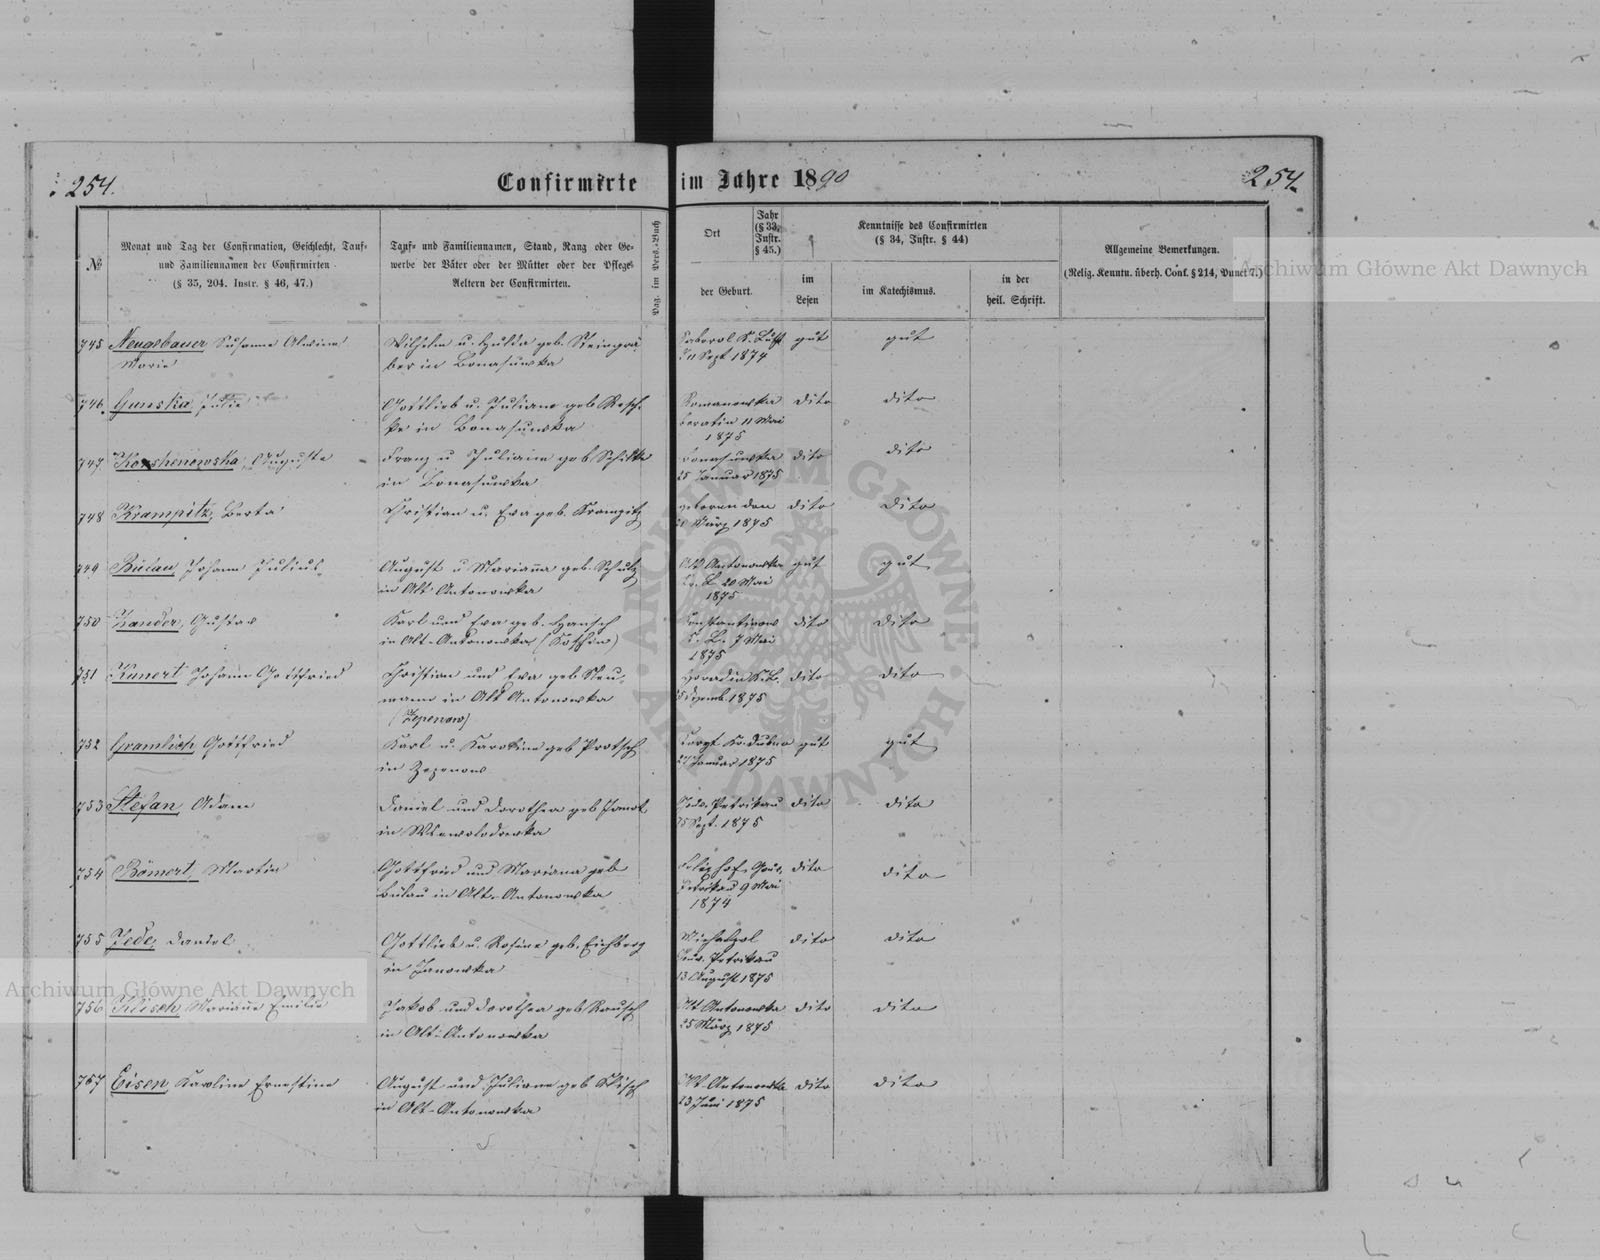 254.
Confirmirte im Jahre 1890
254.
№
Monat und Tag der Confirmation, Geschlecht, Tauf-
und Familiennamen der Confirmirten
(§ 35, 204. Instr. § 46, 47.)
Tauf- und Familiennamen, Stand, Rang oder Ge-
werbe der Väter oder der Mütter oder der Pflege-
Aeltern der Confirmirten.
Pag. im Pers.-Buch
Ort
Jahr
(§ 33,
Instr.
§ 45.)
der Geburt.
Kenntnisse des Confirmirten
(§ 34, Instr. § 44)
im
Lesen
im Katechismus.
in der
heil. Schrift.
Allgemeine Bemerkungen.
(Relig. Kenntn. überh. Conf. § 214, Punct 7.)
Archiwum Główne Akt Dawnych
745 Neugebauer Susanna Alwine
Marie
Wilhelm u. Hulda geb. Steingrä-
ber in
11 Sept 1874
gut
gut
746. Gunska Julie
Gottlieb u. Juliane geb.
in
Romanowka
11 Mai
1875
dito
dito
747 Korshenowska, Auguste
Franz u Juliane geb Schilke
in
25 Januar 1875
dito
dito
748 Krampitz, Berta
Christian u. Eva geb. Krampitz
geboren den
März 1875
dito
dito
749 Bülau, Johann Julius
August u Marianna geb. Schulz
in Alt Antonowka
Alt Antonowka
20 Mai
1875
gut
gut
750 Zander, Gustav
Karl und Eva geb. Hansch
in Alt-Antonowka
Konstantinow
7 Mai
1875
dito
dito
751 Kunert Johann Gottfried
Christian und Eva geb Neu-
mann in Alt Antonowka
(Zepenow)
Dezemb. 1875
dito
dito
752 Gramlich Gottfried
Karl u. Karoline geb Protsch
in Zepenow
27 Januar 1875
gut
gut
753 Stefan, Adam
Daniel und Dorothea geb
in Wsewolodowka
Petrikau
Sept. 1875
dito
dito
754 Römert, Martin
Gottfried und Mariana geb
Bülau in Alt-Antonowka
Petrikau 9 Mai
1874
dito
dito
755 Jede, Daniel
Gottlieb u. Rosine geb. Eichberg
in Janowka
Gouv. Petrikau
13 August 1875
dito
dito
Archiwum Główne Akt Dawnych
756 Klisch, Marianne Emilie
Jakob und Dorothea geb Rausch
in Alt-Antonowka
Alt Antonowka
25 März 1875
dito
dito
757 Eisen, Karoline Ernestine
August und Juliane geb Klisch
in Alt-Antonowka
Alt-Antonowka
23 Juni 1875
dito
dito
ARCHIWUM GŁÓWNE
AKT DAWNYCH